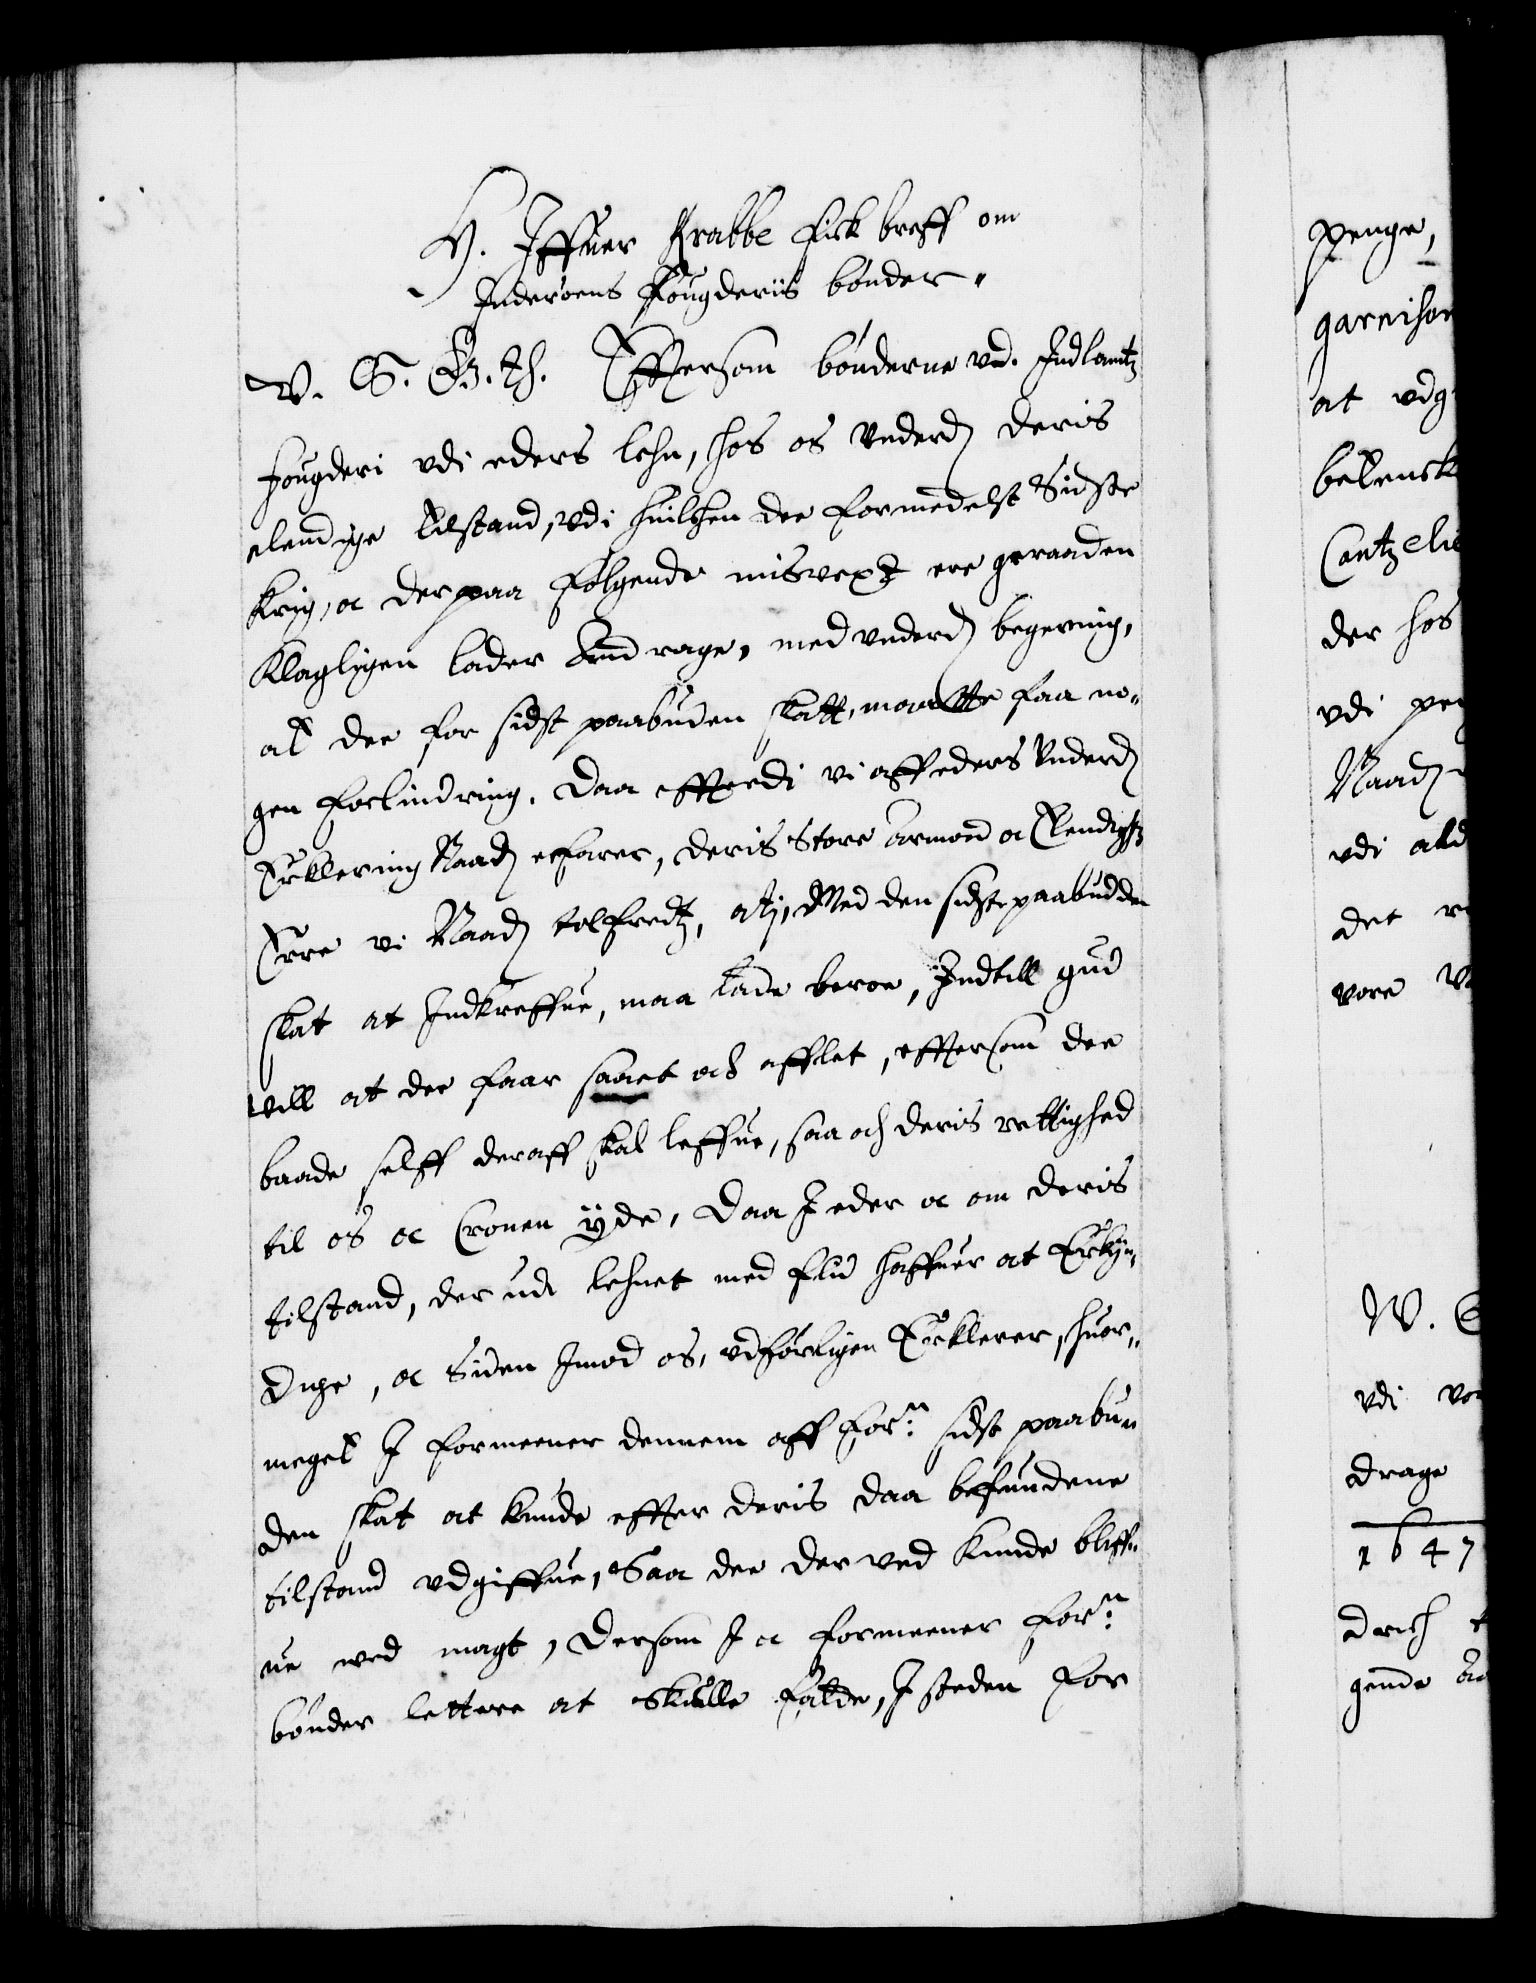 H. Iffuer Krabbe fick breff om
Inderøens Fougderiis bønder.
V. G. G. th. Effersom bønderne vd. Indlantz
fougderi vdi eders lehn, hos os Underd: deris
elendige tilstand, vdi huilchen dee formedelst Sidste
krig, oc derpaa følgende misvext ere geraaden
klagligen lader Andrage, med underd: begering,
at dee for sidst paabuden skatt, maatte faa no-
gen forlindring. Daa efftterdi vi aff eders Underd:
Erklering Naad: erfarer, deris Store armod oc Elendighz
Erre vi Naad: tilfredtz, at I, Med den sidste paabudden
skat at Indkreffue, maa lade beroe, Indtill gud
vill at dee faar saaet och afflet, efftersom dee
baade self deraff skal leffue, saa och deris rettighed
til os oc Cronen yde, Daa I eder oc om deris
tilstand, der udi lehnet med flid haffuer at Erkyn-
dige, oc Siden Imod os, udførligen Erklerer, huor-
meget I formeener dennem aff for.ne sidst paabu-
den skat at kunde effter deris daa befundene
tilstand udgiffue, Saa dee der ved kunde bliff-
ue ved magt, Dersom I oc formeener for.ne
bønder lettere at skulle falde, I steden for
penge,
garnison
at udg
Cantzelie
der hos
vdi pen
Naad:
vdi
det
vore
W. G
vdi vor
drage
1647
gende